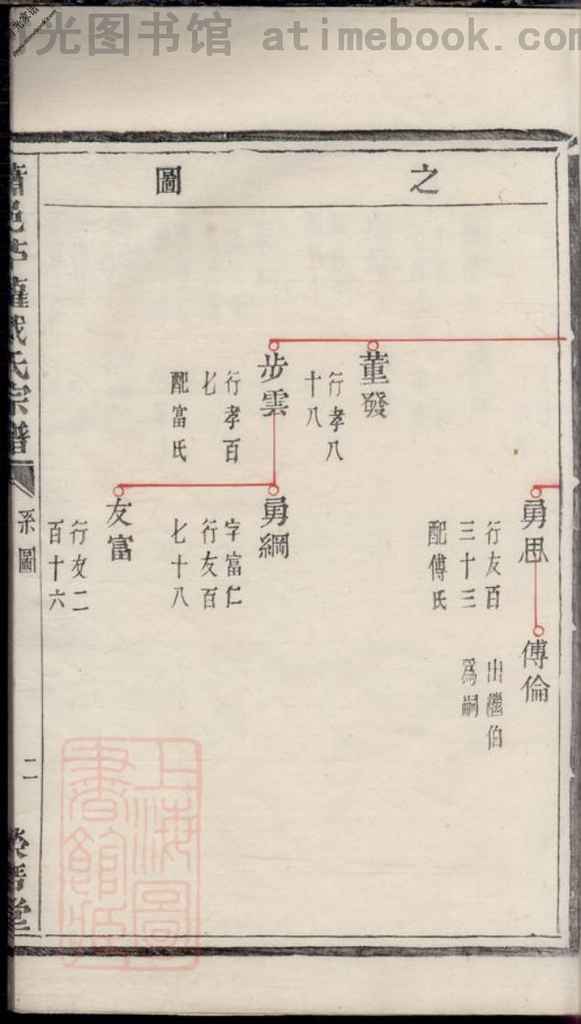 光图书馆 atimebook.com
之圖
董發
行孝八
十八
步雲
行孝百
七
配富氏
勇思
行友百
三十三
配傅氏
傅倫
出繼伯
為嗣
勇綱
字富仁
行友百
七十八
友富
行友二
百十六
戴氏宗譜
系圖
二
上海圖
書館藏